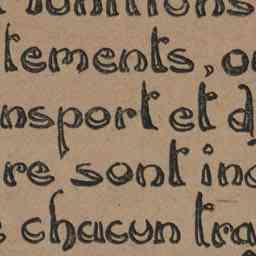 munitions
tements, o
nsport et d
re sont in
chacun tra